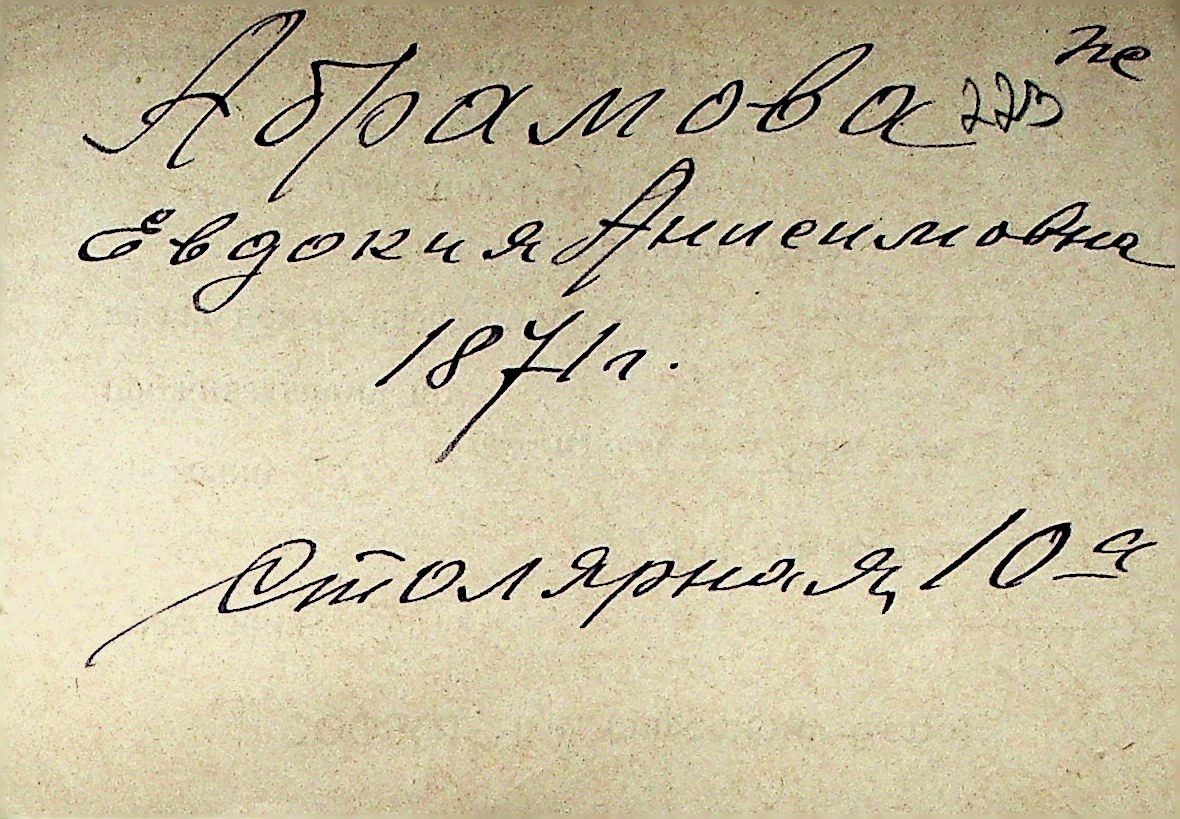 Абрамова
Евдокия Анисимовна
1871 г.
Столярная, 10 а